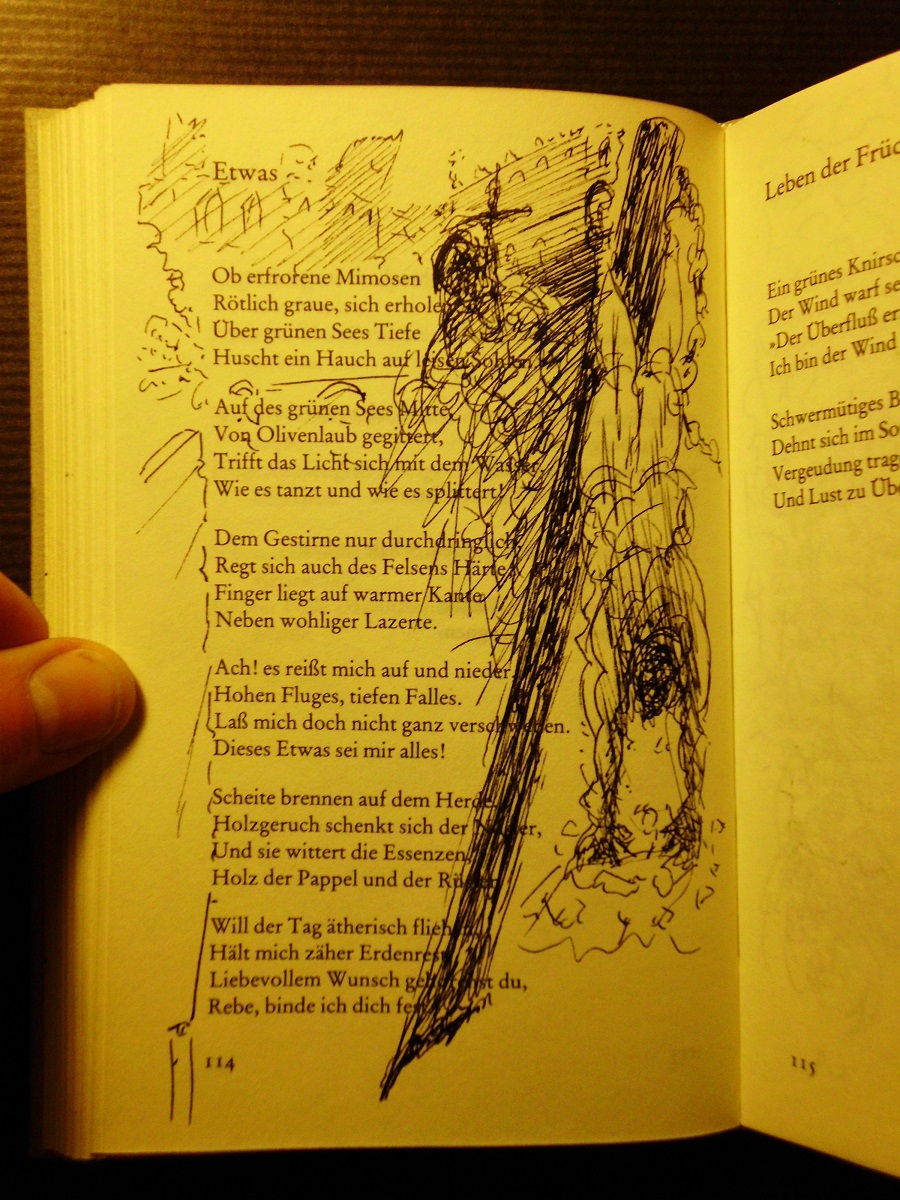 Etwas
Ob erfrorene Mimosen
Rötlich graue, sich erhole
Über grünen Sees Tiefe
Huscht ein Hauch auf leisen Sohlen
Auf des grünen Sees Mitte,
Von Olivenlaub gegittert,
Trifft das Licht sich mit dem Wasser
Wie es tanzt und wie es splittert!
Dem Gestirne nur durchdringlich
Regt sich auch des Felsens Härte
Finger liegt auf warmer Kante
Neben wohliger Lazerte.
Ach! es reißt mich auf und nieder
Hohen Fluges, tiefen Falles.
Laß mich doch nicht ganz verschweben.
Dieses Etwas sei mir alles!
Scheite brennen auf dem Herde
Holzgeruch schenkt sich der
Und sie wittert die Essenzen
Holz der Pappel und der
Will der Tag ätherisch
Hält mich zäher Erdenrest
Liebevollem Wunsch gehorchst du,
Rebe, binde ich dich fest
114
Leben der
Ein grünes
Der Wind warf
»Der Überfluß
Ich bin der Wind
Schwermütiges
Dehnt sich im
Vergeudung
Und Lust zu
115